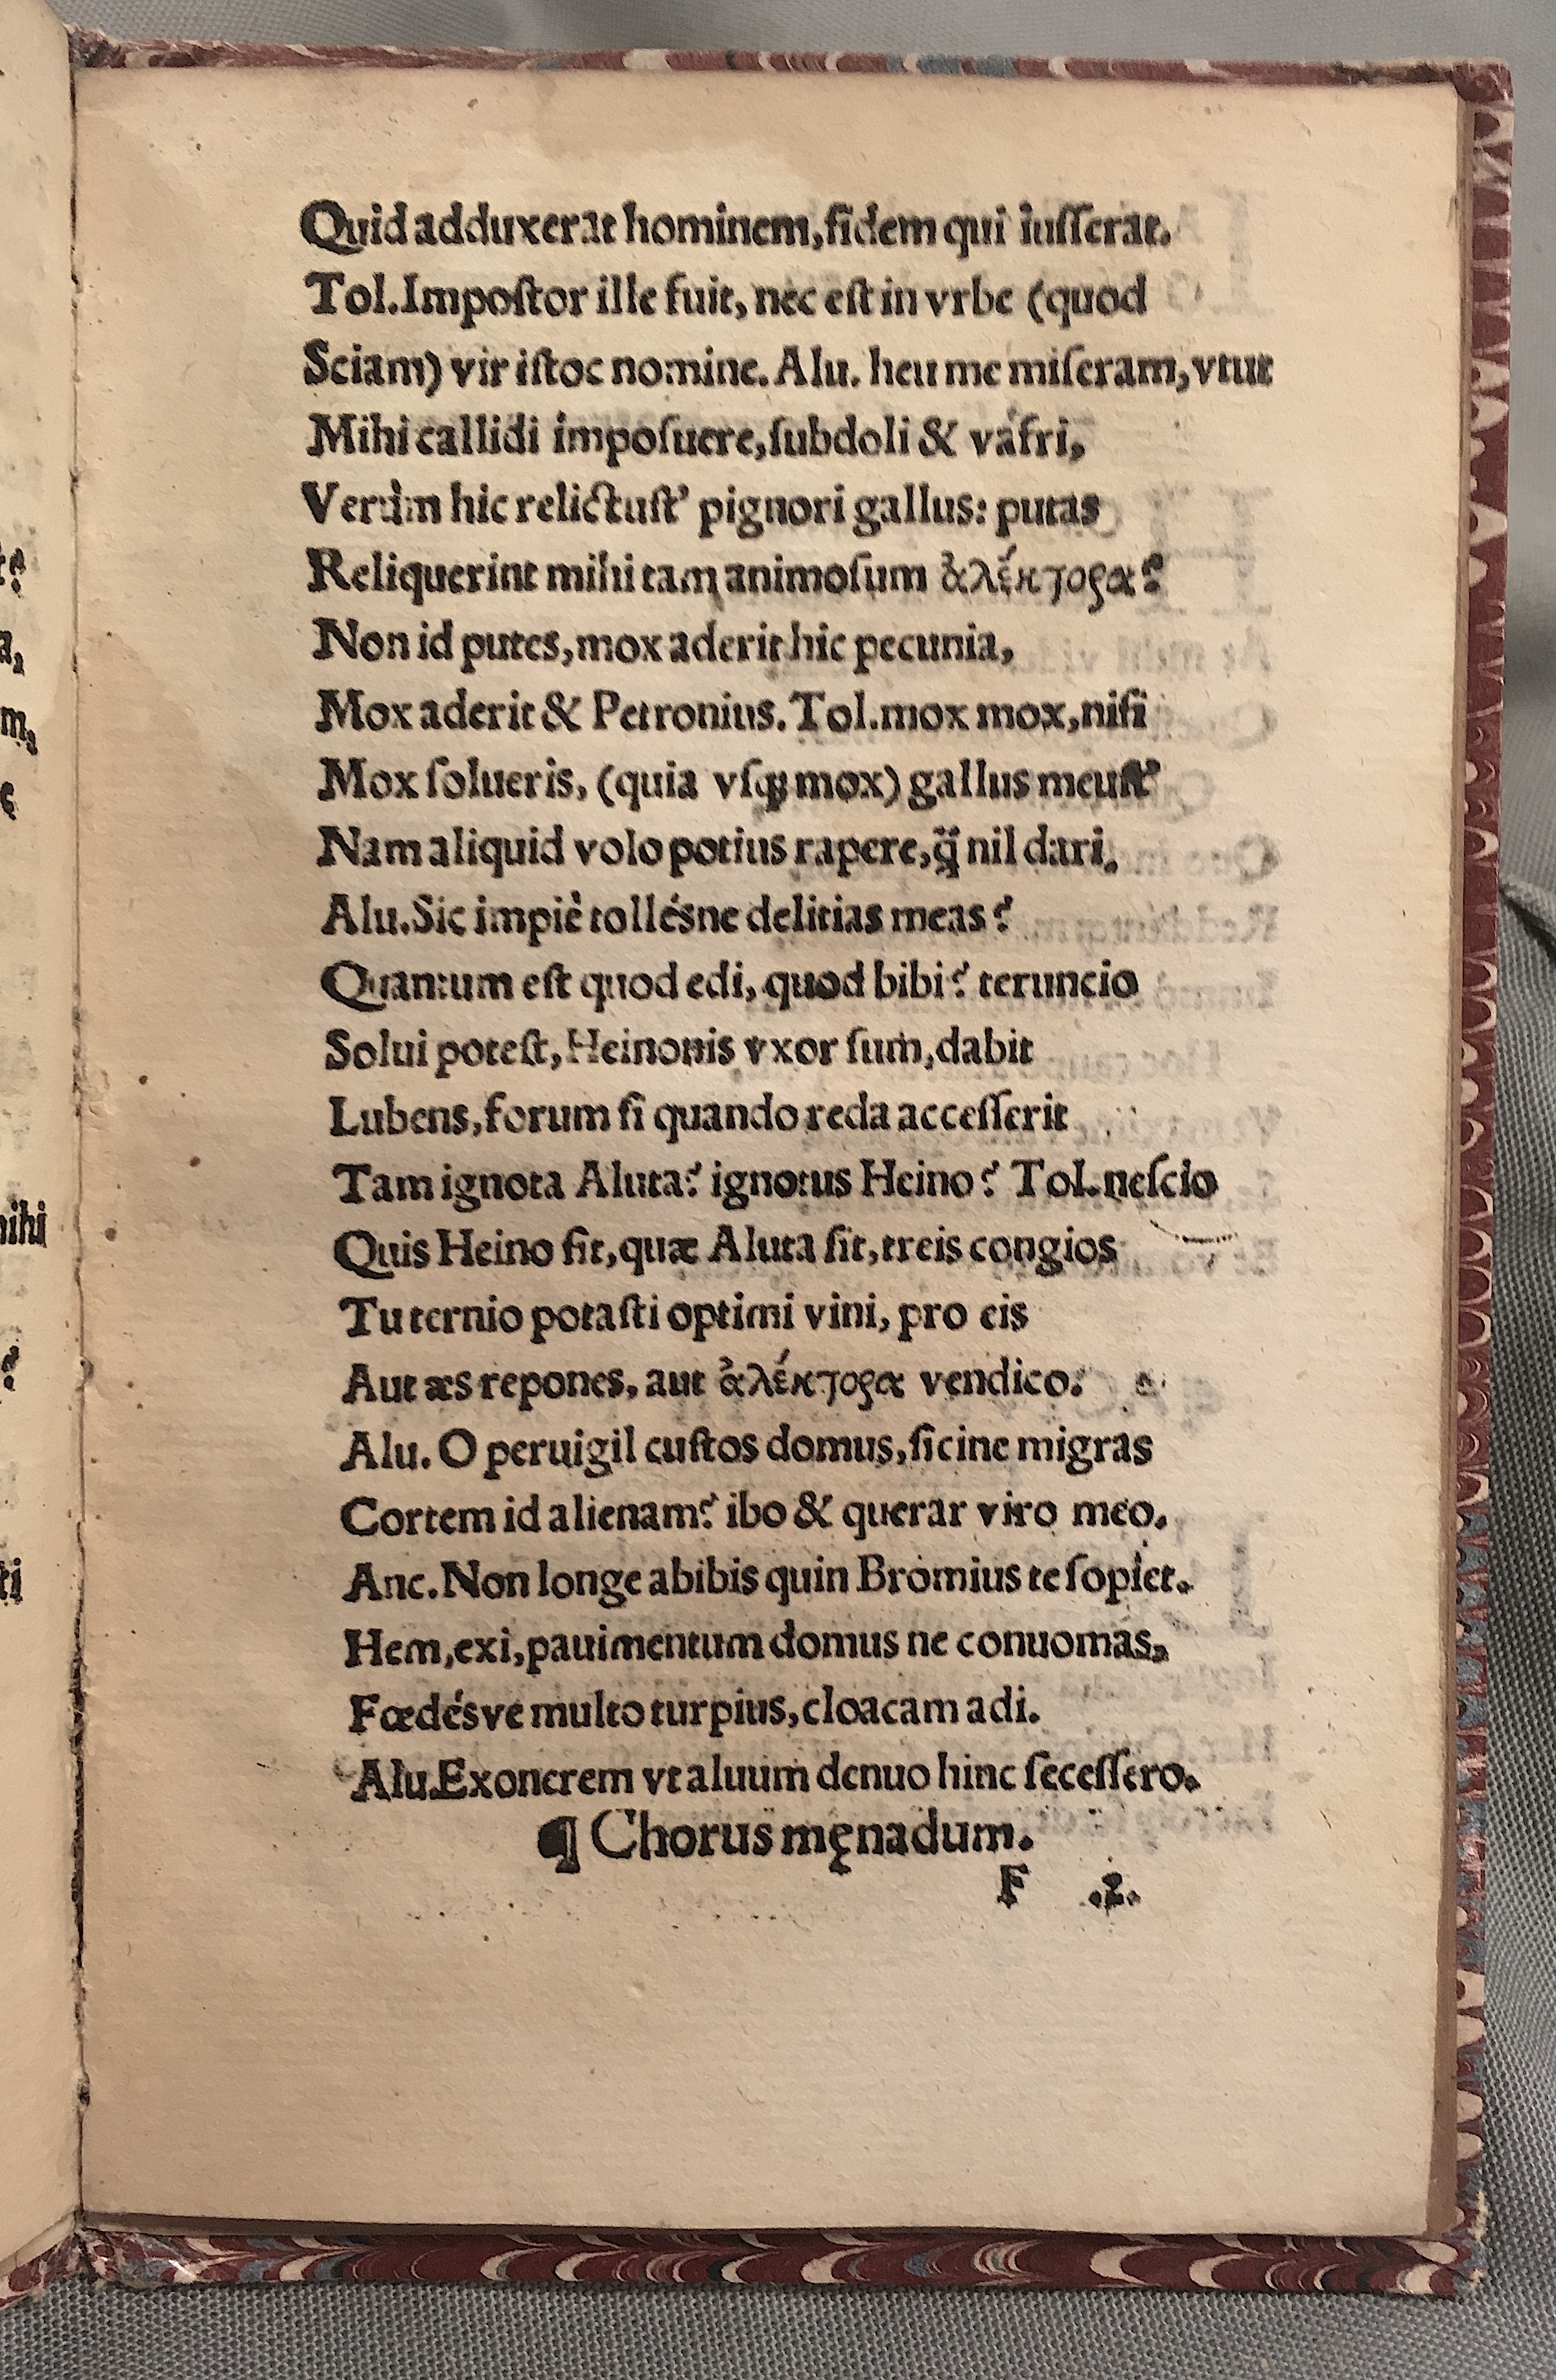 Quid adduxerat hominem, fidem qui iuſſerat.
Tol. Impoſtor ille fuit, nec eſt in vrbe (quod
Sciam) vir iſtoc nomine. Alu. heu me miſeram, vtut
Mihi callidi impoſuere, ſubdoli & vafri,
Verùm hic relictuſt' pignori gallus: putas
Reliquerint mihi tam animoſum ἀλέκτορα?
Non id putes, mox aderit hic pecunia,
Mox aderit & Petronius. Tol. mox mox, niſi
Mox ſolueris, (quia vſqꝫ mox) gallus meuſt'
Nam aliquid volo potius rapere, q̃ nil dari.
Alu. Sic impiè tollésne delitias meas?
Quantum eſt quod edi, quod bibi? teruncio
Solui poteſt, Heinonis vxor ſum, dabit
Lubens, forum ſi quando reda acceſſerit
Tam ignota Aluta? ignotus Heino? Tol. neſcio
Quis Heino ſit, quæ Aluta ſit, treis congios
Tu ternio potaſti optimi vini, pro eis
Aut æs repones, aut ἀλέκτορα vendico.
Alu. O peruigil cuſtos domus, ſicine migras
Cortem id alienam? ibo & querar viro meo.
Anc. Non longe abibis quin Bromius te ſopiet.
Hem, exi, pauimentum domus ne conuomas,
Fœdésve multo turpius, cloacam adi.
Alu. Exonerem vt aluum denuo hinc ſeceſſero.
¶ Chorus męnadum.
F .2.
ihi
ti